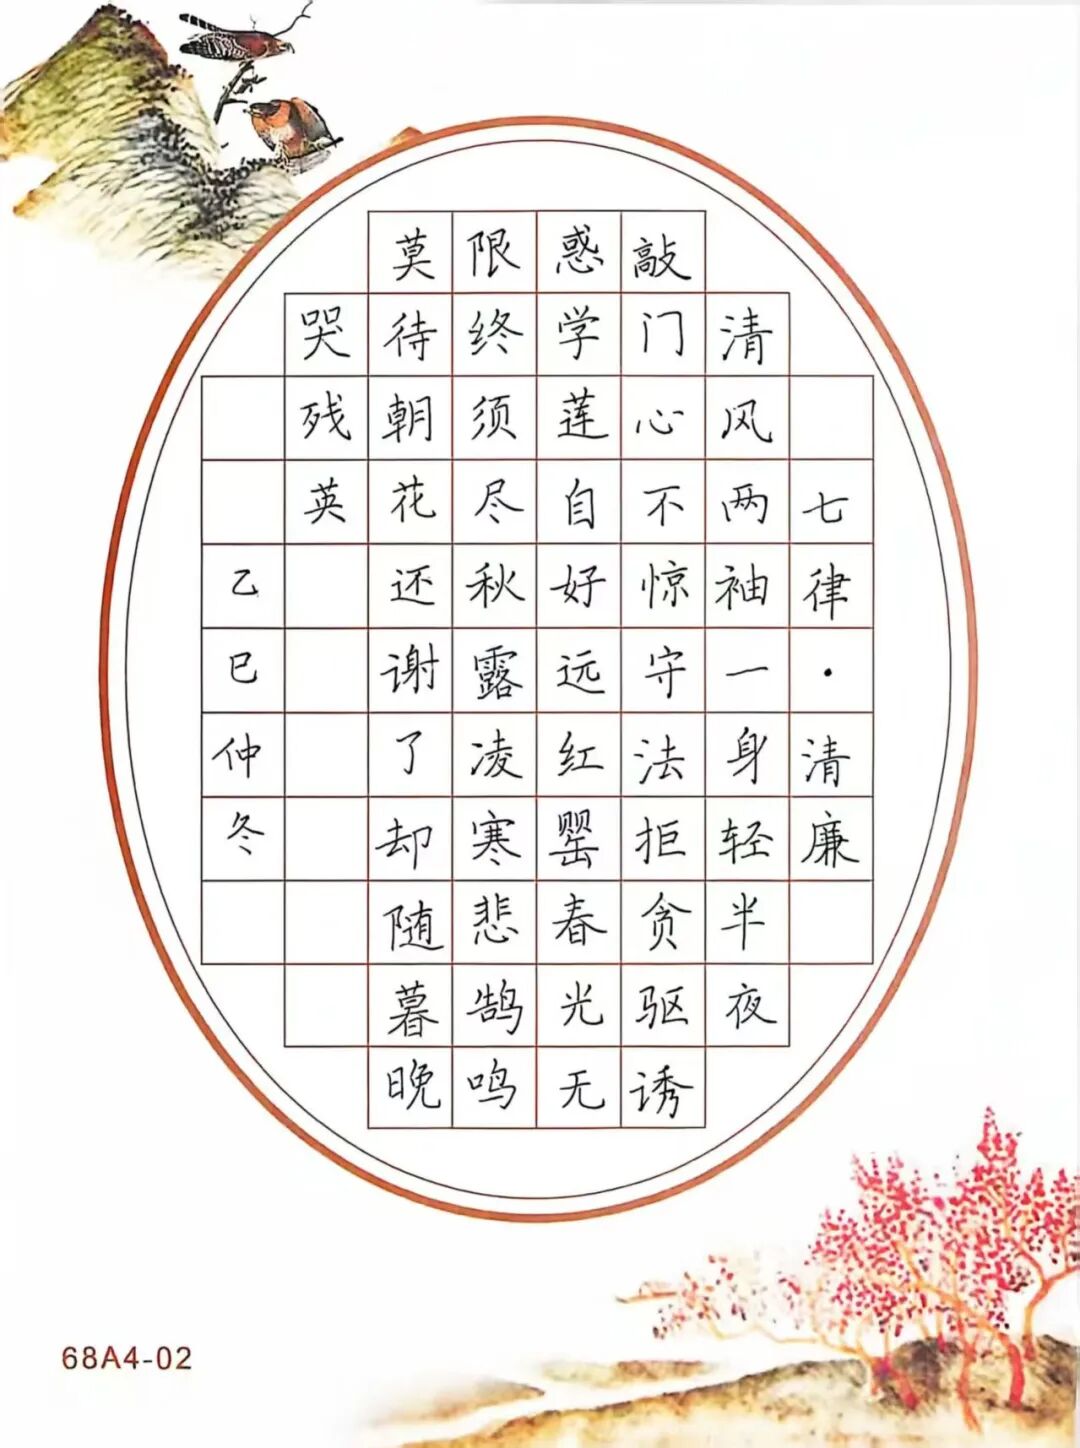 七律·清廉
清风两袖一身轻半夜
敲门心不惊守法拒贪驱诱
惑学莲自好远红罂春光无
限终须尽秋露凌寒悲鹄鸣
莫待朝花还谢了却随暮晚
哭残英
乙巳仲冬
68A4-02